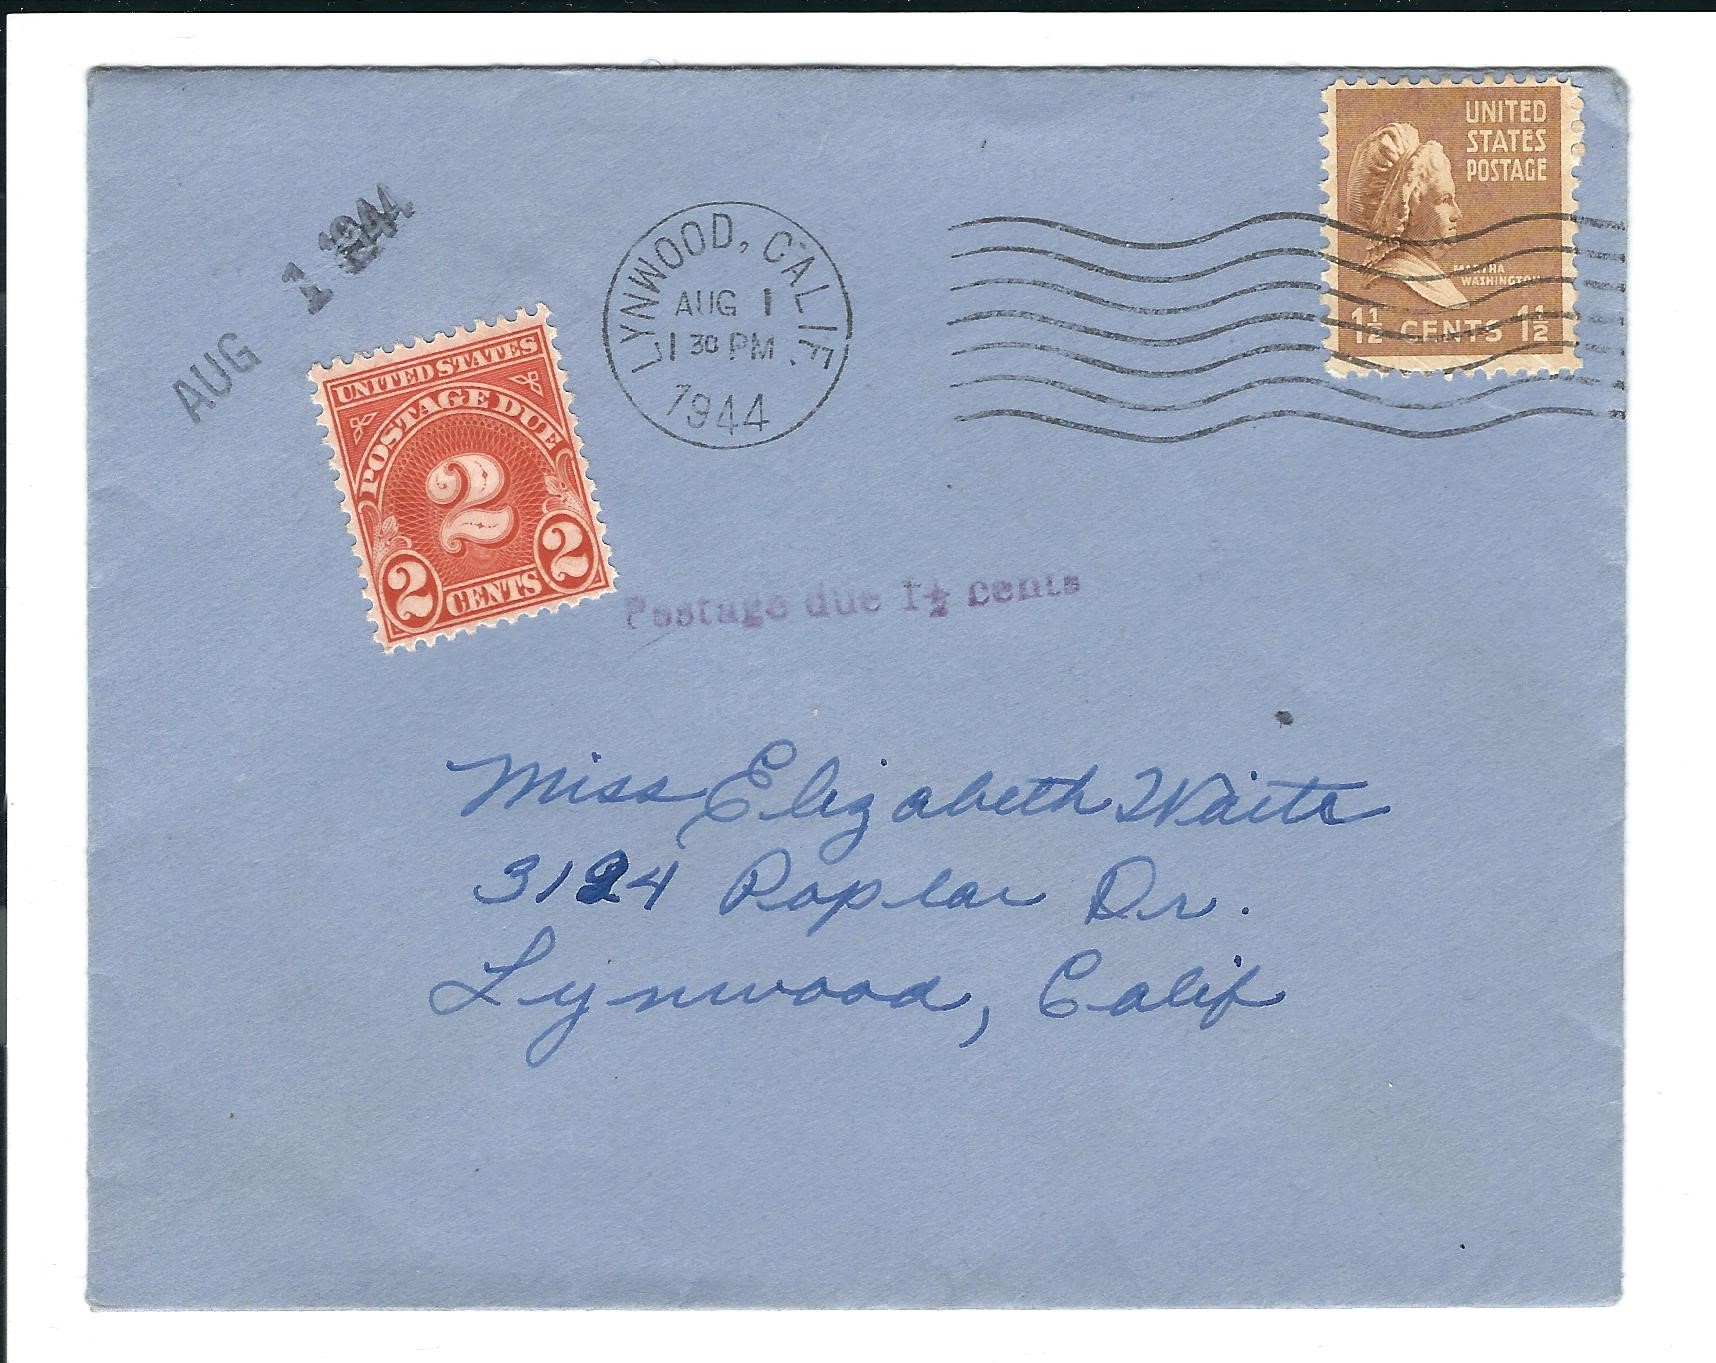 UNITED
STATES
POSTAGE
MARTHA
WASHINGTON
1½ CENTS 1½
AUG 1 1944
LYNWOOD, CALIF.
AUG 1
1 30 PM
1944
UNITED STATES
POSTAGE DUE
2
2 CENTS 2
Postage due 1½ cents
Miss Elizabeth Waite
3124 Poplar Dr.
Lynwood, Calif